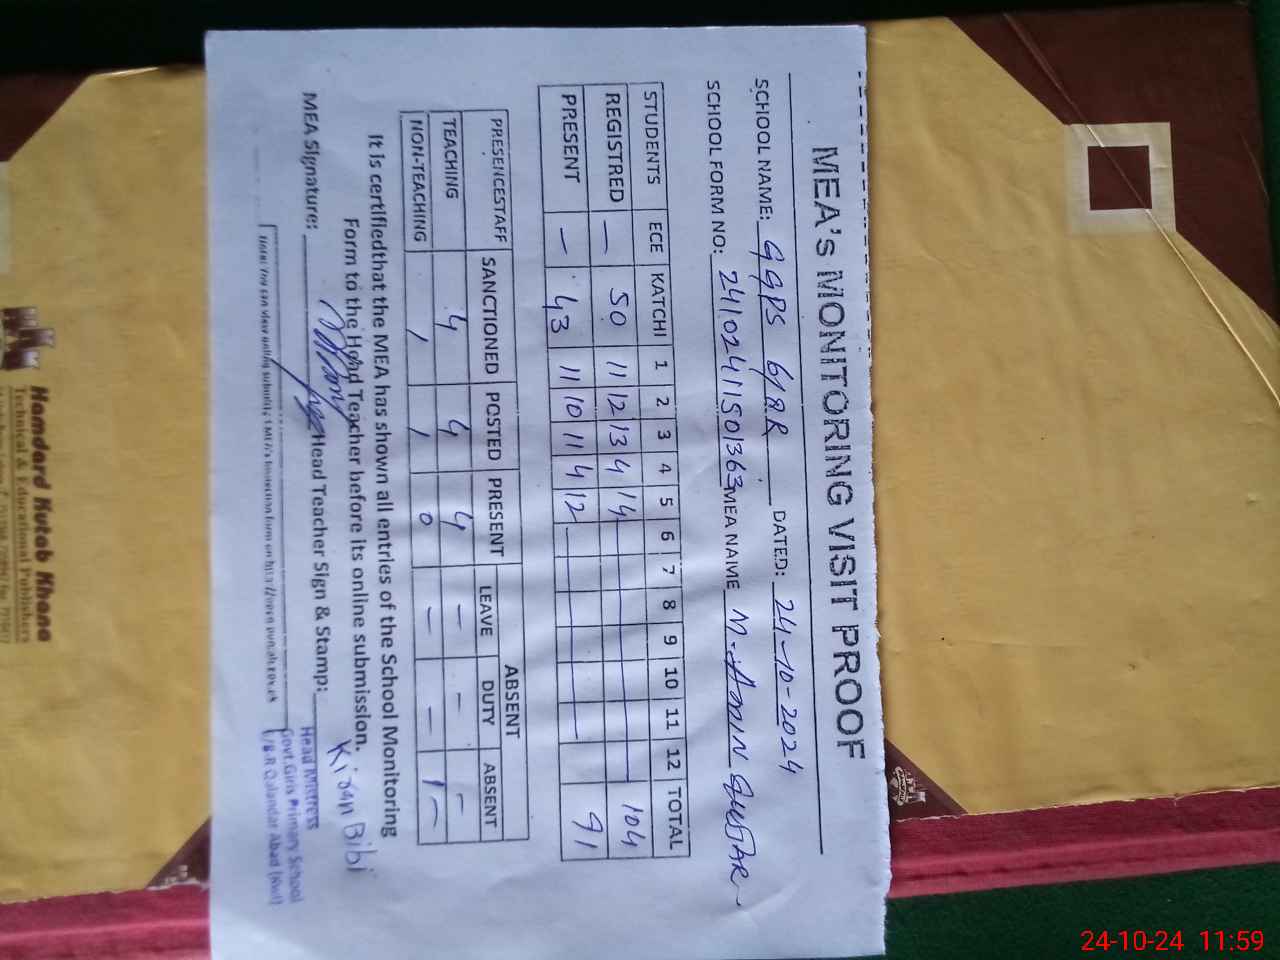 MEA's MONITORING VISIT PROOF
SCHOOL NAME: GGPS 6/8R DATED: 24-10-2024
SCHOOL FORM NO: 24102411501363 MEA NAME M. Amin Sustar
STUDENTS ECE KATCHI 1 2 3 4 5 6 7 8 9 10 11 12 TOTAL
REGISTRED — 50 11 12 13 4 14 104
PRESENT — 43 11 10 11 4 12 91
PRESENCESTAFF SANCTIONED POSTED PRESENT ABSENT
LEAVE DUTY ABSENT
TEACHING 4 4 4 — — —
NON-TEACHING 1 1 0 — — 1 —
It is certifiedthat the MEA has shown all entries of the School Monitoring
Form to the Head Teacher before its online submission.
Kiran Bibi
MEA Signature: Head Teacher Sign & Stamp:
Head Mistress
Govt. Girls Primary School
6/8.R Qalandar Abad (Kwl)
Note: You can view online submitted MEA's Inspection form on
Hamdard Kutab Khana
Technical & Educational Publishers
24-10-24 11:59